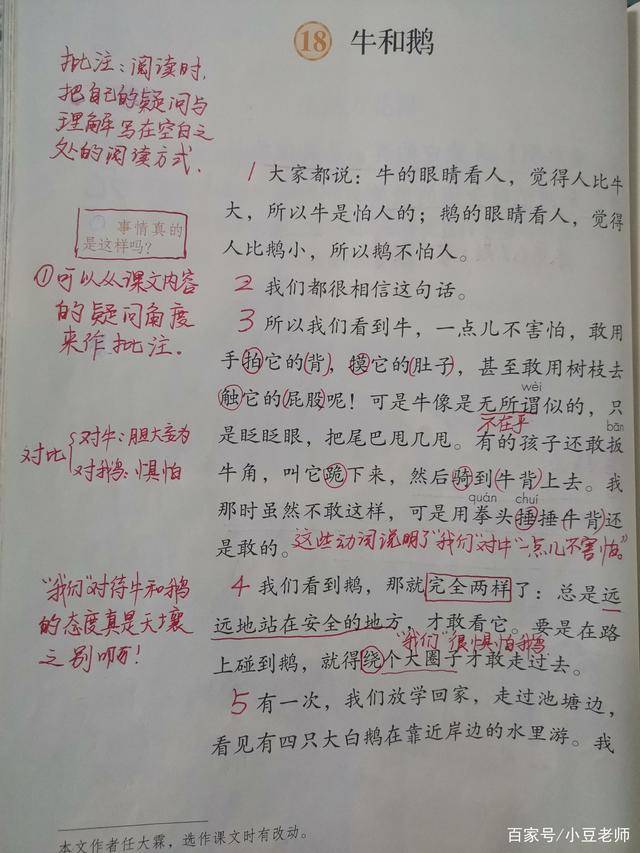 18 牛和鹅
批注：阅读时，
把自己的疑问与
理解写在空白之
处的阅读方式．
1 大家都说：牛的眼睛看人，觉得人比牛
大，所以牛是怕人的；鹅的眼睛看人，觉得
人比鹅小，所以鹅不怕人。
事情真的
是这样吗？
①可以从课文内容
的疑问角度
来作批注．
2 我们都很相信这句话。
3 所以我们看到牛，一点儿不害怕，敢用
手拍它的背，摸它的肚子，甚至敢用树枝去
wèi
触它的屁股呢！可是牛像是无所谓似的，只
不在乎
bān
是眨眨眼，把尾巴甩几甩。有的孩子还敢扳
对比
对牛：胆大妄为
对鹅：惧怕
牛角，叫它跪下来，然后骑到牛背上去。我
quán chuí
那时虽然不敢这样，可是用拳头捶捶牛背还
是敢的。
这些动词说明了“我们”对牛“一点儿不害怕。”
“我们”对待牛和鹅
的态度真是天壤
之别啊！
4 我们看到鹅，那就完全两样了：总是远
远地站在安全的地方，才敢看它。要是在路
“我们”很惧怕鹅
上碰到鹅，就得绕个大圈子才敢走过去。
5 有一次，我们放学回家，走过池塘边，
看见有四只大白鹅在靠近岸边的水里游。我
本文作者任大霖，选作课文时有改动。
百家号/小豆老师